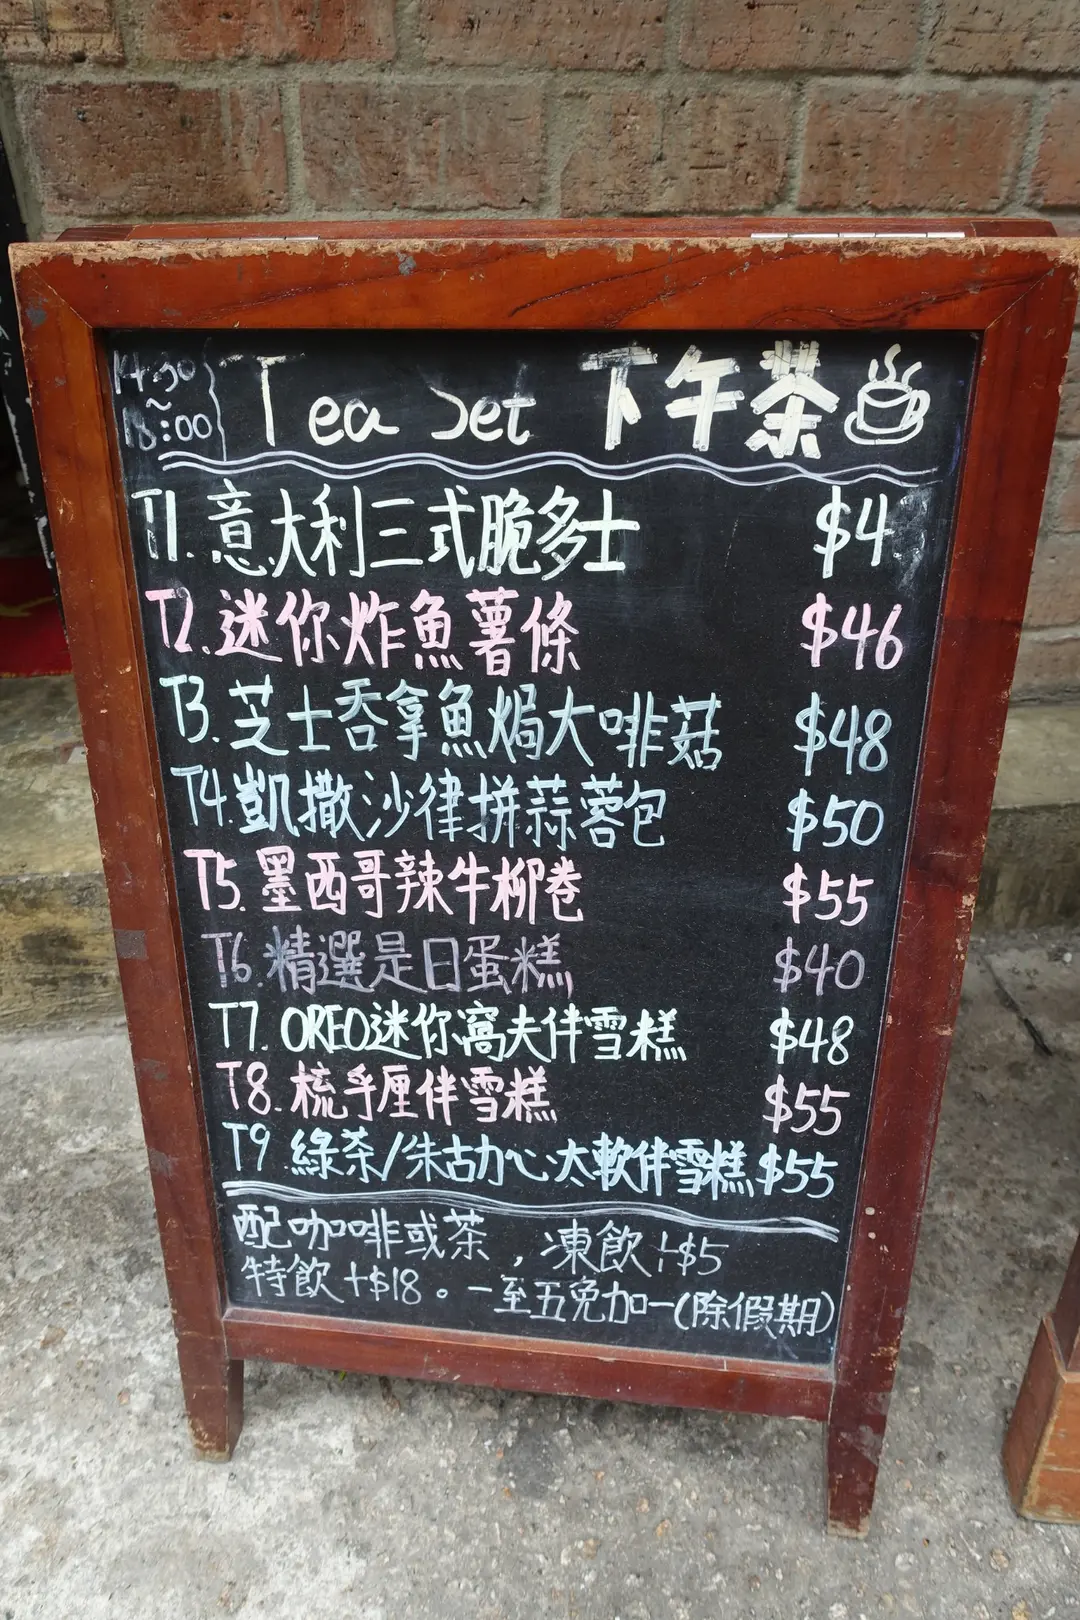 14:30
~
18:00
Tea Set 下午茶
T1. 意大利三式脆多士 $4
T2. 迷你炸魚薯條 $46
T3. 芝士吞拿魚焗大啡菇 $48
T4. 凱撒沙律拼蒜蓉包 $50
T5. 墨西哥辣牛柳卷 $55
T6. 精選是日蛋糕 $40
T7. OREO迷你窩夫伴雪糕 $48
T8. 梳乎厘伴雪糕 $55
T9 綠茶/朱古力心太軟伴雪糕 $55
配咖啡或茶，凍飲+$5
特飲+$18。一至五免加一(除假期)